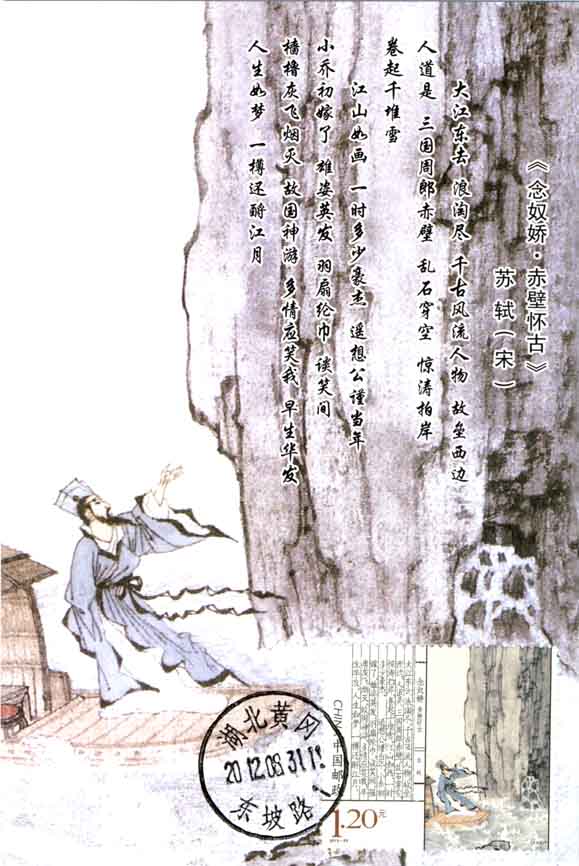 《念奴娇·赤壁怀古》
苏轼(宋)
大江东去 浪淘尽 千古风流人物 故垒西边
人道是 三国周郎赤壁 乱石穿空 惊涛拍岸
卷起千堆雪
江山如画 一时多少豪杰 遥想公谨当年
小乔初嫁了 雄姿英发 羽扇纶巾 谈笑间
樯橹灰飞烟灭 故国神游 多情应笑我 早生华发
人生如梦 一樽还酹江月
湖北黄冈
2012.08.31.11
东坡路
中国邮政
1.20元